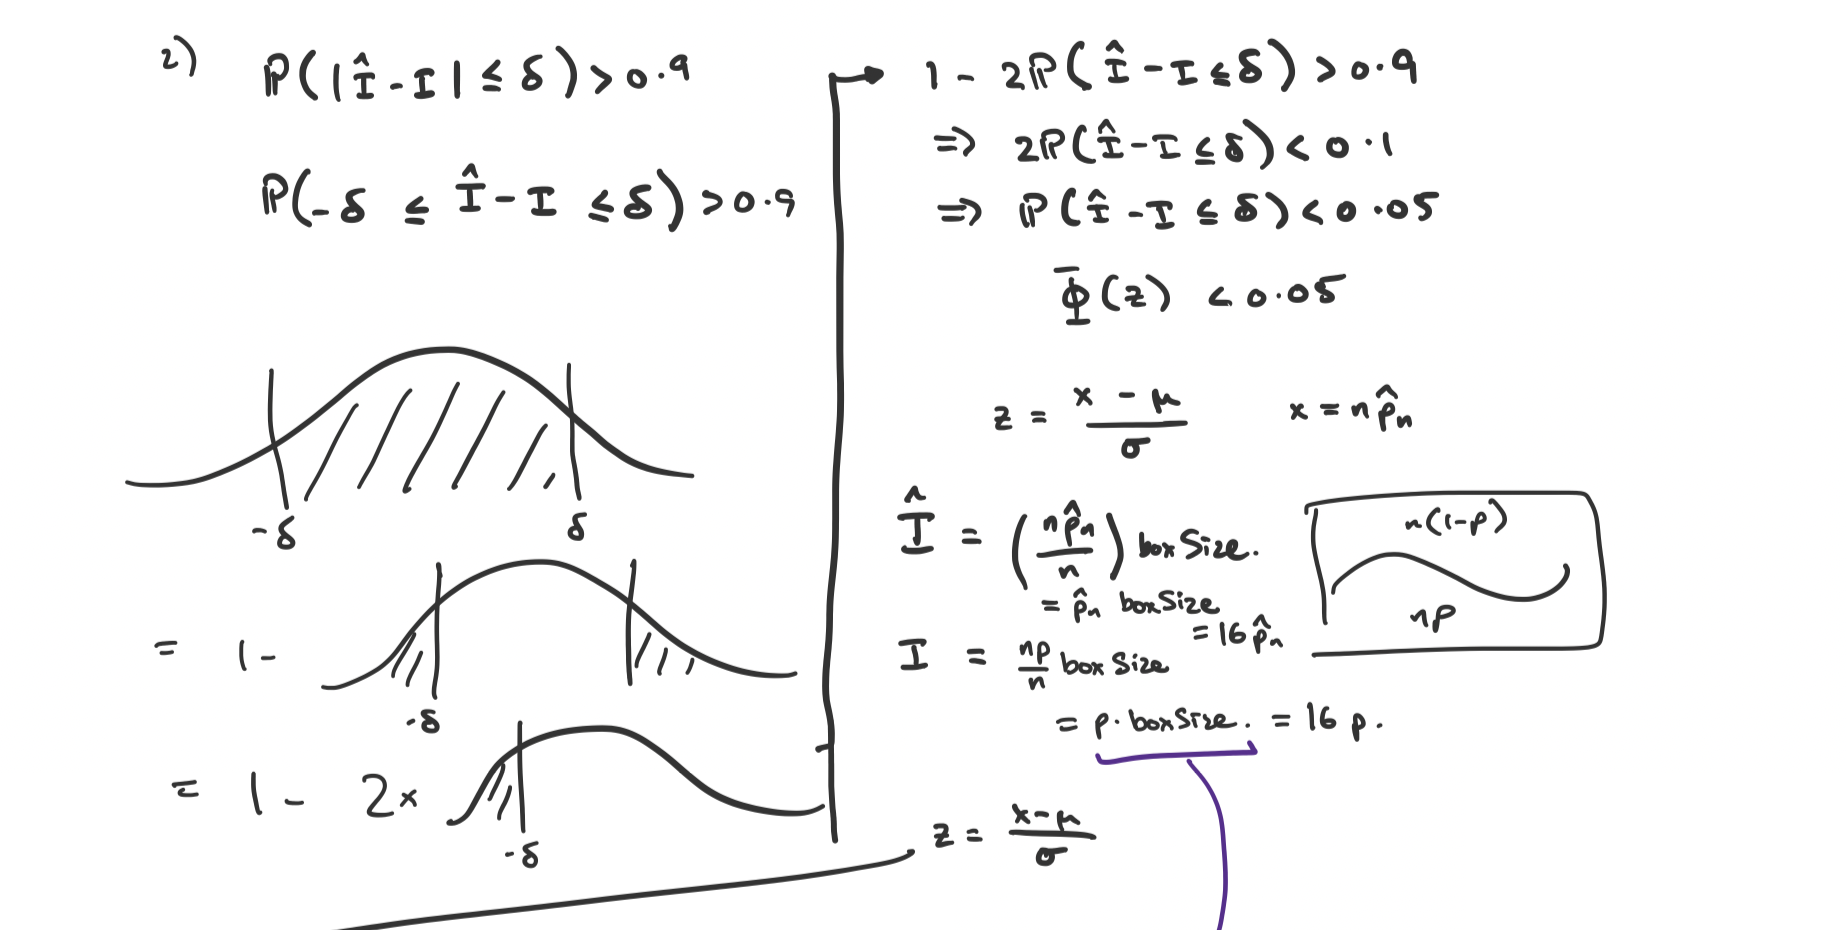 2)
ℙ(|Î - I| ≤ δ) > 0.9
ℙ(-δ ≤ Î - I ≤ δ) > 0.9
-δ δ
= 1 -
-δ
= 1 - 2×
-δ
1 - 2ℙ(Î - I ≤ δ) > 0.9
⇒ 2ℙ(Î - I ≤ δ) < 0.1
⇒ ℙ(Î - I ≤ δ) < 0.05
Φ(z) < 0.05
z = (x - μ)/σ x = n p̂ₙ
Î = (n p̂ₙ / n) boxSize.
= p̂ₙ boxSize
= 16 p̂ₙ
I = np/n boxSize
= p. boxSize. = 16 p.
n(1-p)
np
z = (x - μ)/σ